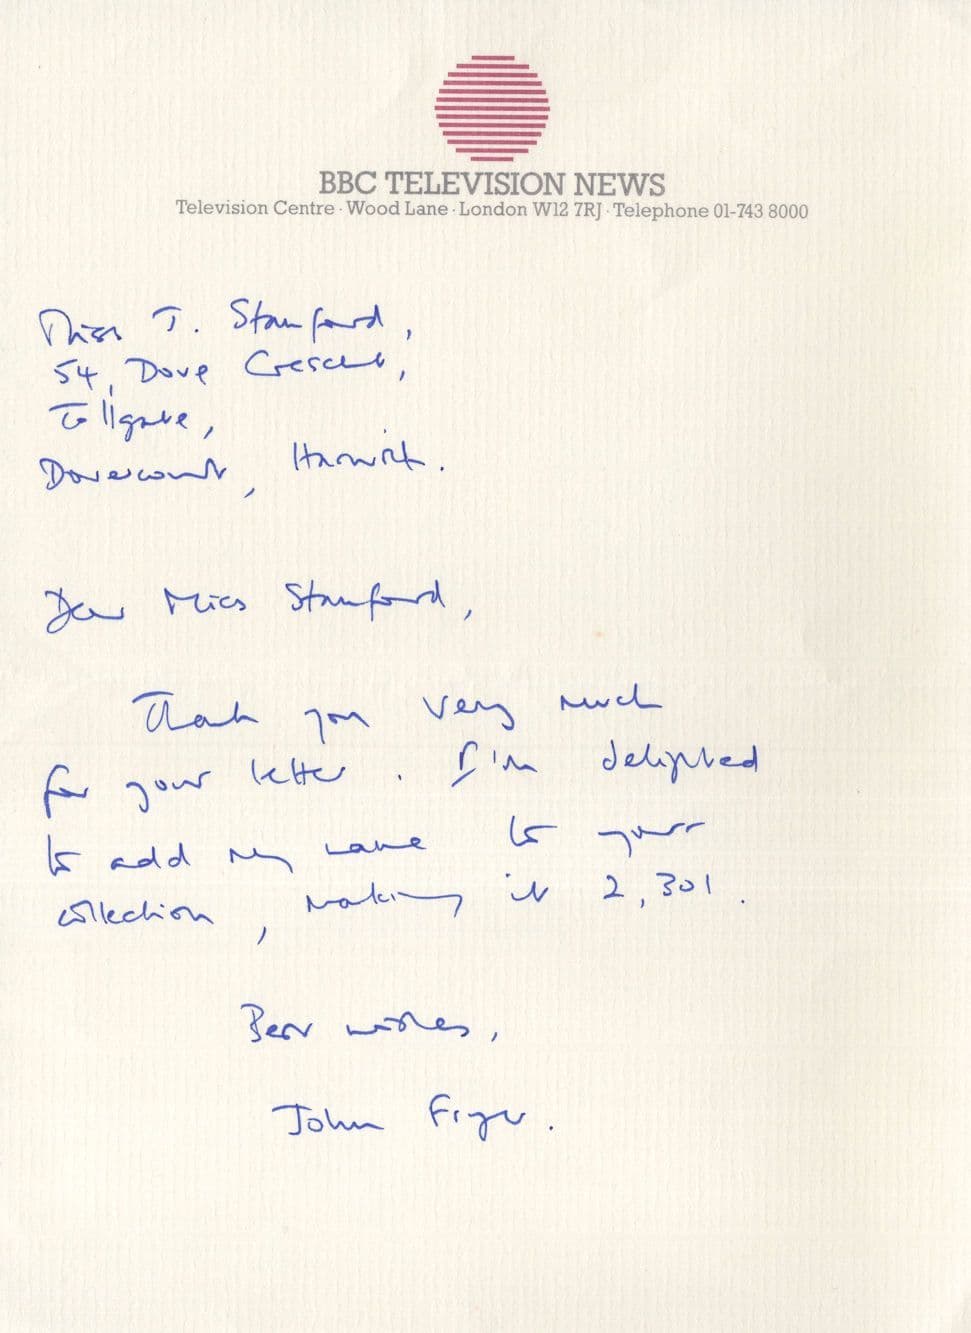 BBC TELEVISION NEWS
Television Centre · Wood Lane · London W12 7RJ · Telephone 01-743 8000
Miss T. Stamford,
54, Dove Crescent,
Tollgate,
Dovercourt, Harwich.
Dear Miss Stamford,
Thank you very much
for your letter. I'm delighted
to add my name to your
collection, making it 2,301.
Best wishes,
John Fryer.